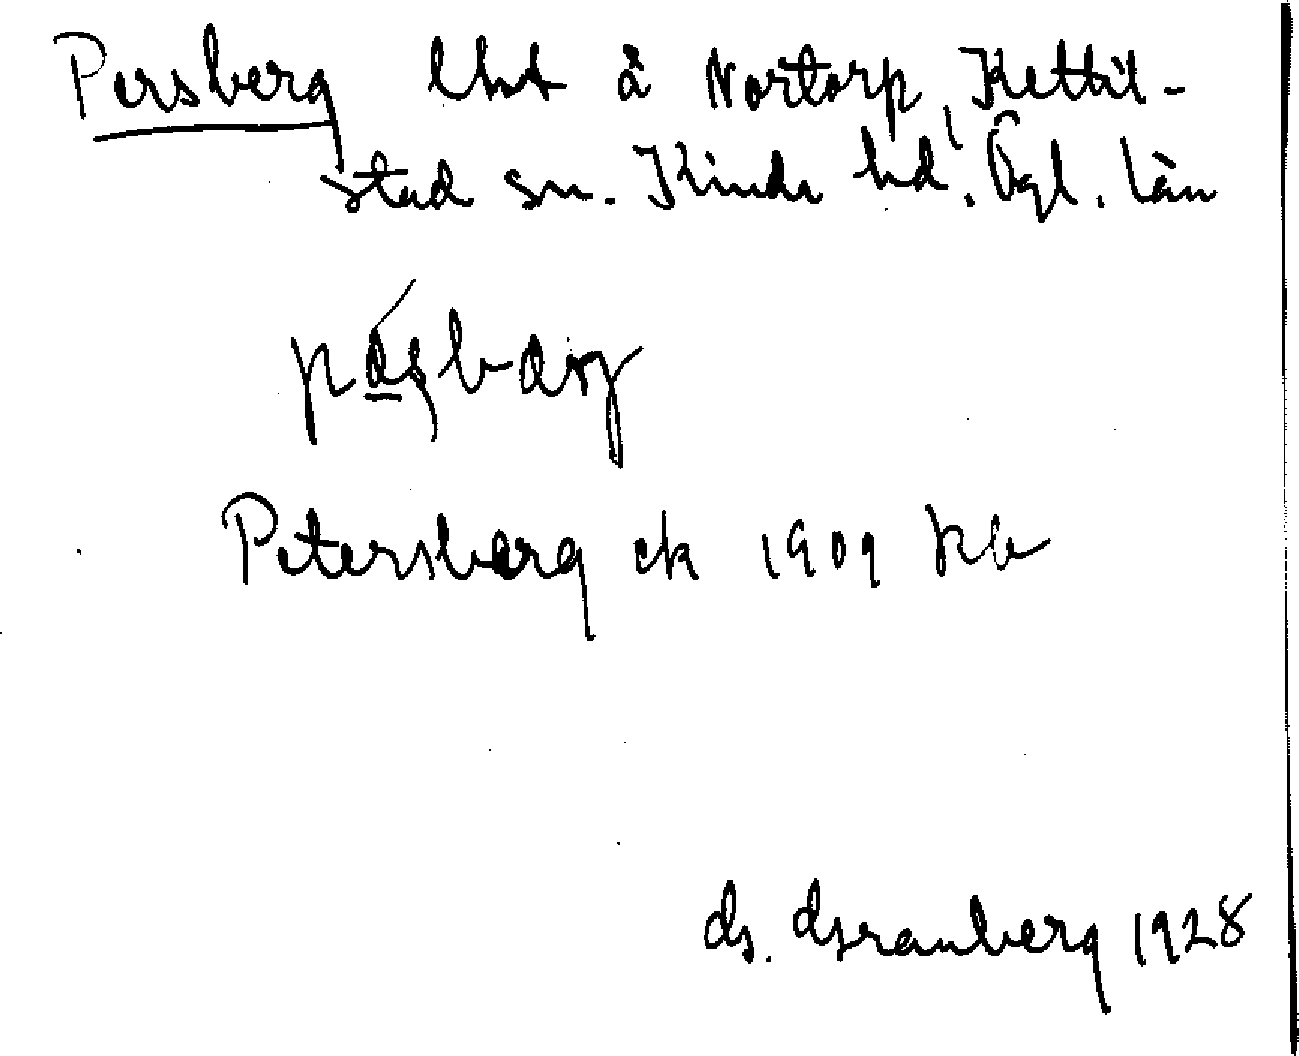 Persberg lht å Nortorp, Kettil-
stad sn. Kinda hd, Ögl. län
Petersberg ek 1909 kb
G. Granberg 1928